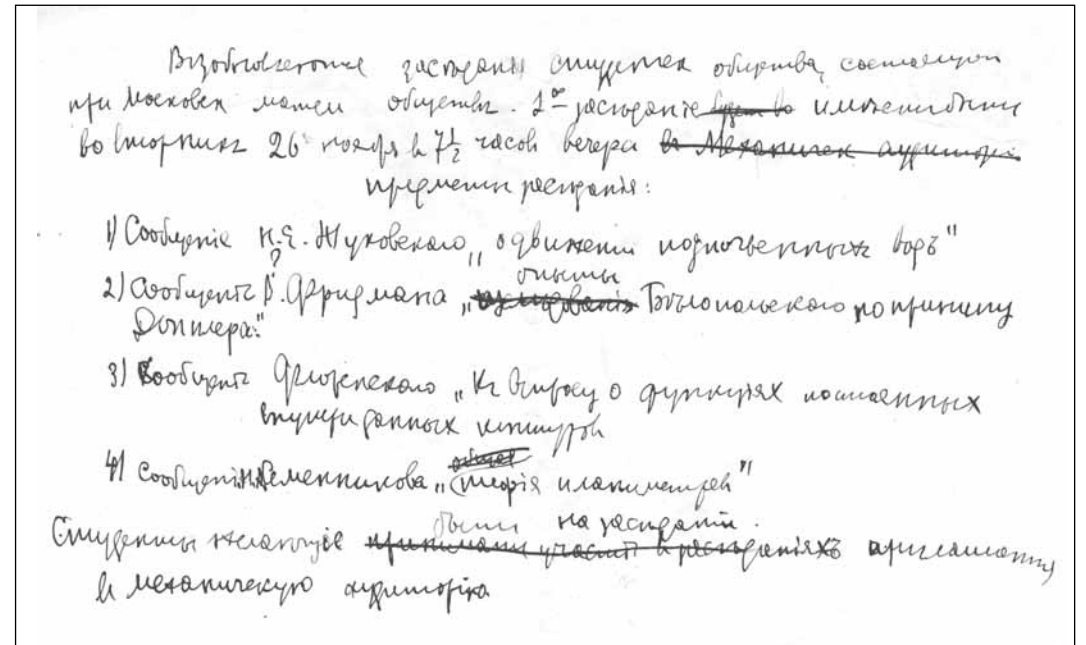 Возобновление заседаній студентск общества, состоящаго
при Московск матем обществѣ. 1ое засѣданіе будет во имѣетъ быть
во вторникъ 26 ноября в 7 1/2 часов вечера въ Механическ аудиторіи
предметы засѣданія:
1) Сообщеніе Н.Е. Жуковскаго „о движеніи подпочвенныхъ водъ"
?
опыты
2) Сообщеніе В. Фридмана „изслѣдованія Бѣлопольскаго по принципу
Допплера."
3) Сообщеніе Флоренскаго „Къ вопросу о функціях постоянных
внутри данных контуров
общая
4) Сообщеніе Некменникова „теорія планиметров"
быть на засѣданіи.
Студенты желающіе принимать участіе в засѣданіяхъ приглашаются
в механическую аудиторію